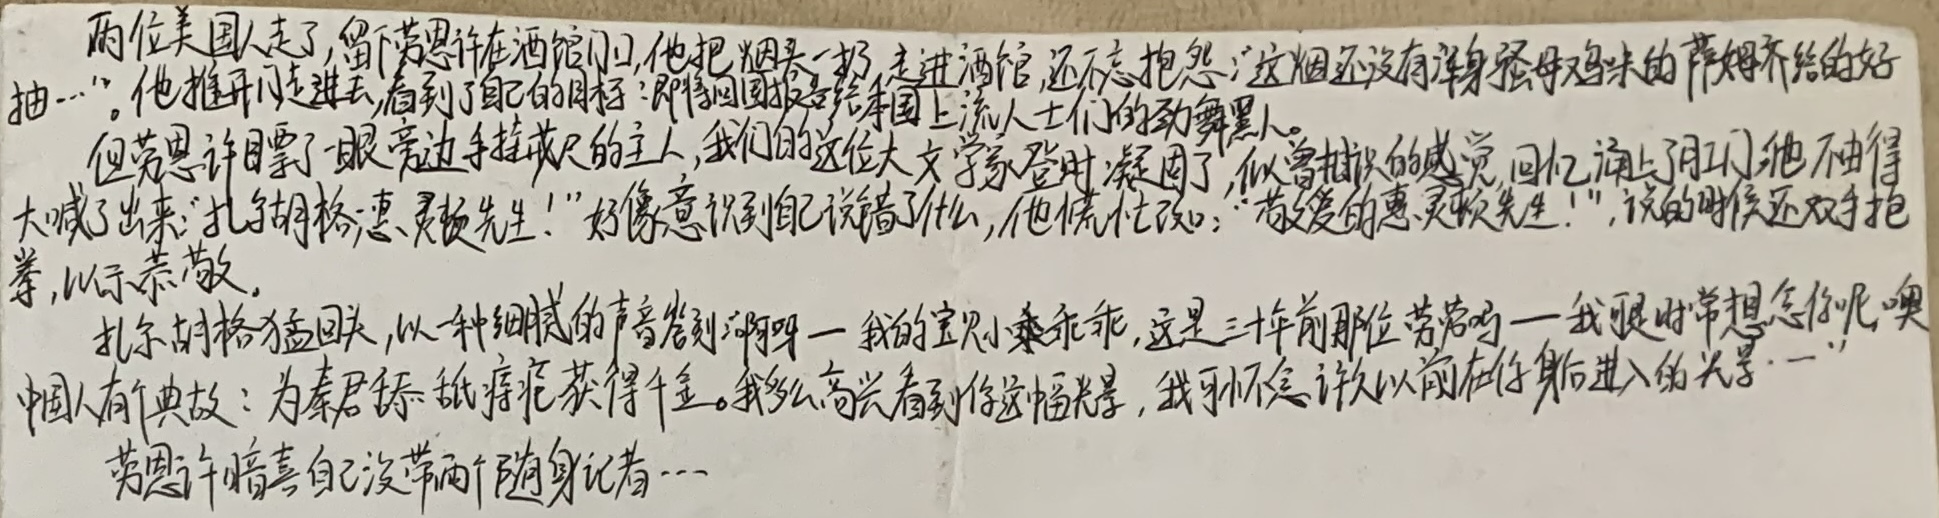 两位美国人走了,留下劳恩许在酒馆门口,他把烟头一扔,走进酒馆,还不忘抱怨:“这烟还没有浑身骚母鸡味的萨姆齐给的好
抽…”。他推开门走进去,看到了自己的目标:即将回国报告给本国上流人士们的劲舞黑人。
但劳恩许瞟了一眼旁边手持戒尺的主人,我们的这位大文学家登时凝固了,似曾相识的感觉,回忆涌上了肛门,他不由得
大喊了出来:“扎尔胡格·惠灵顿先生!”好像意识到自己说错了什么,他慌忙改口:“敬爱的惠灵顿先生!”,说的时候还双手抱
拳,以示恭敬。
扎尔胡格猛回头,以一种细腻的声音答到:“啊呀—我的宝贝小乖乖乖,这是三十年前那位劳劳吗—我可是时常想念你呢,噢
中国人有个典故:为秦君舔舐痔疮获得千金。我多么高兴看到你这幅光景,我可怀念许久以前在你身后进入的光景·—”
劳恩许暗喜自己没带两个随身记者…